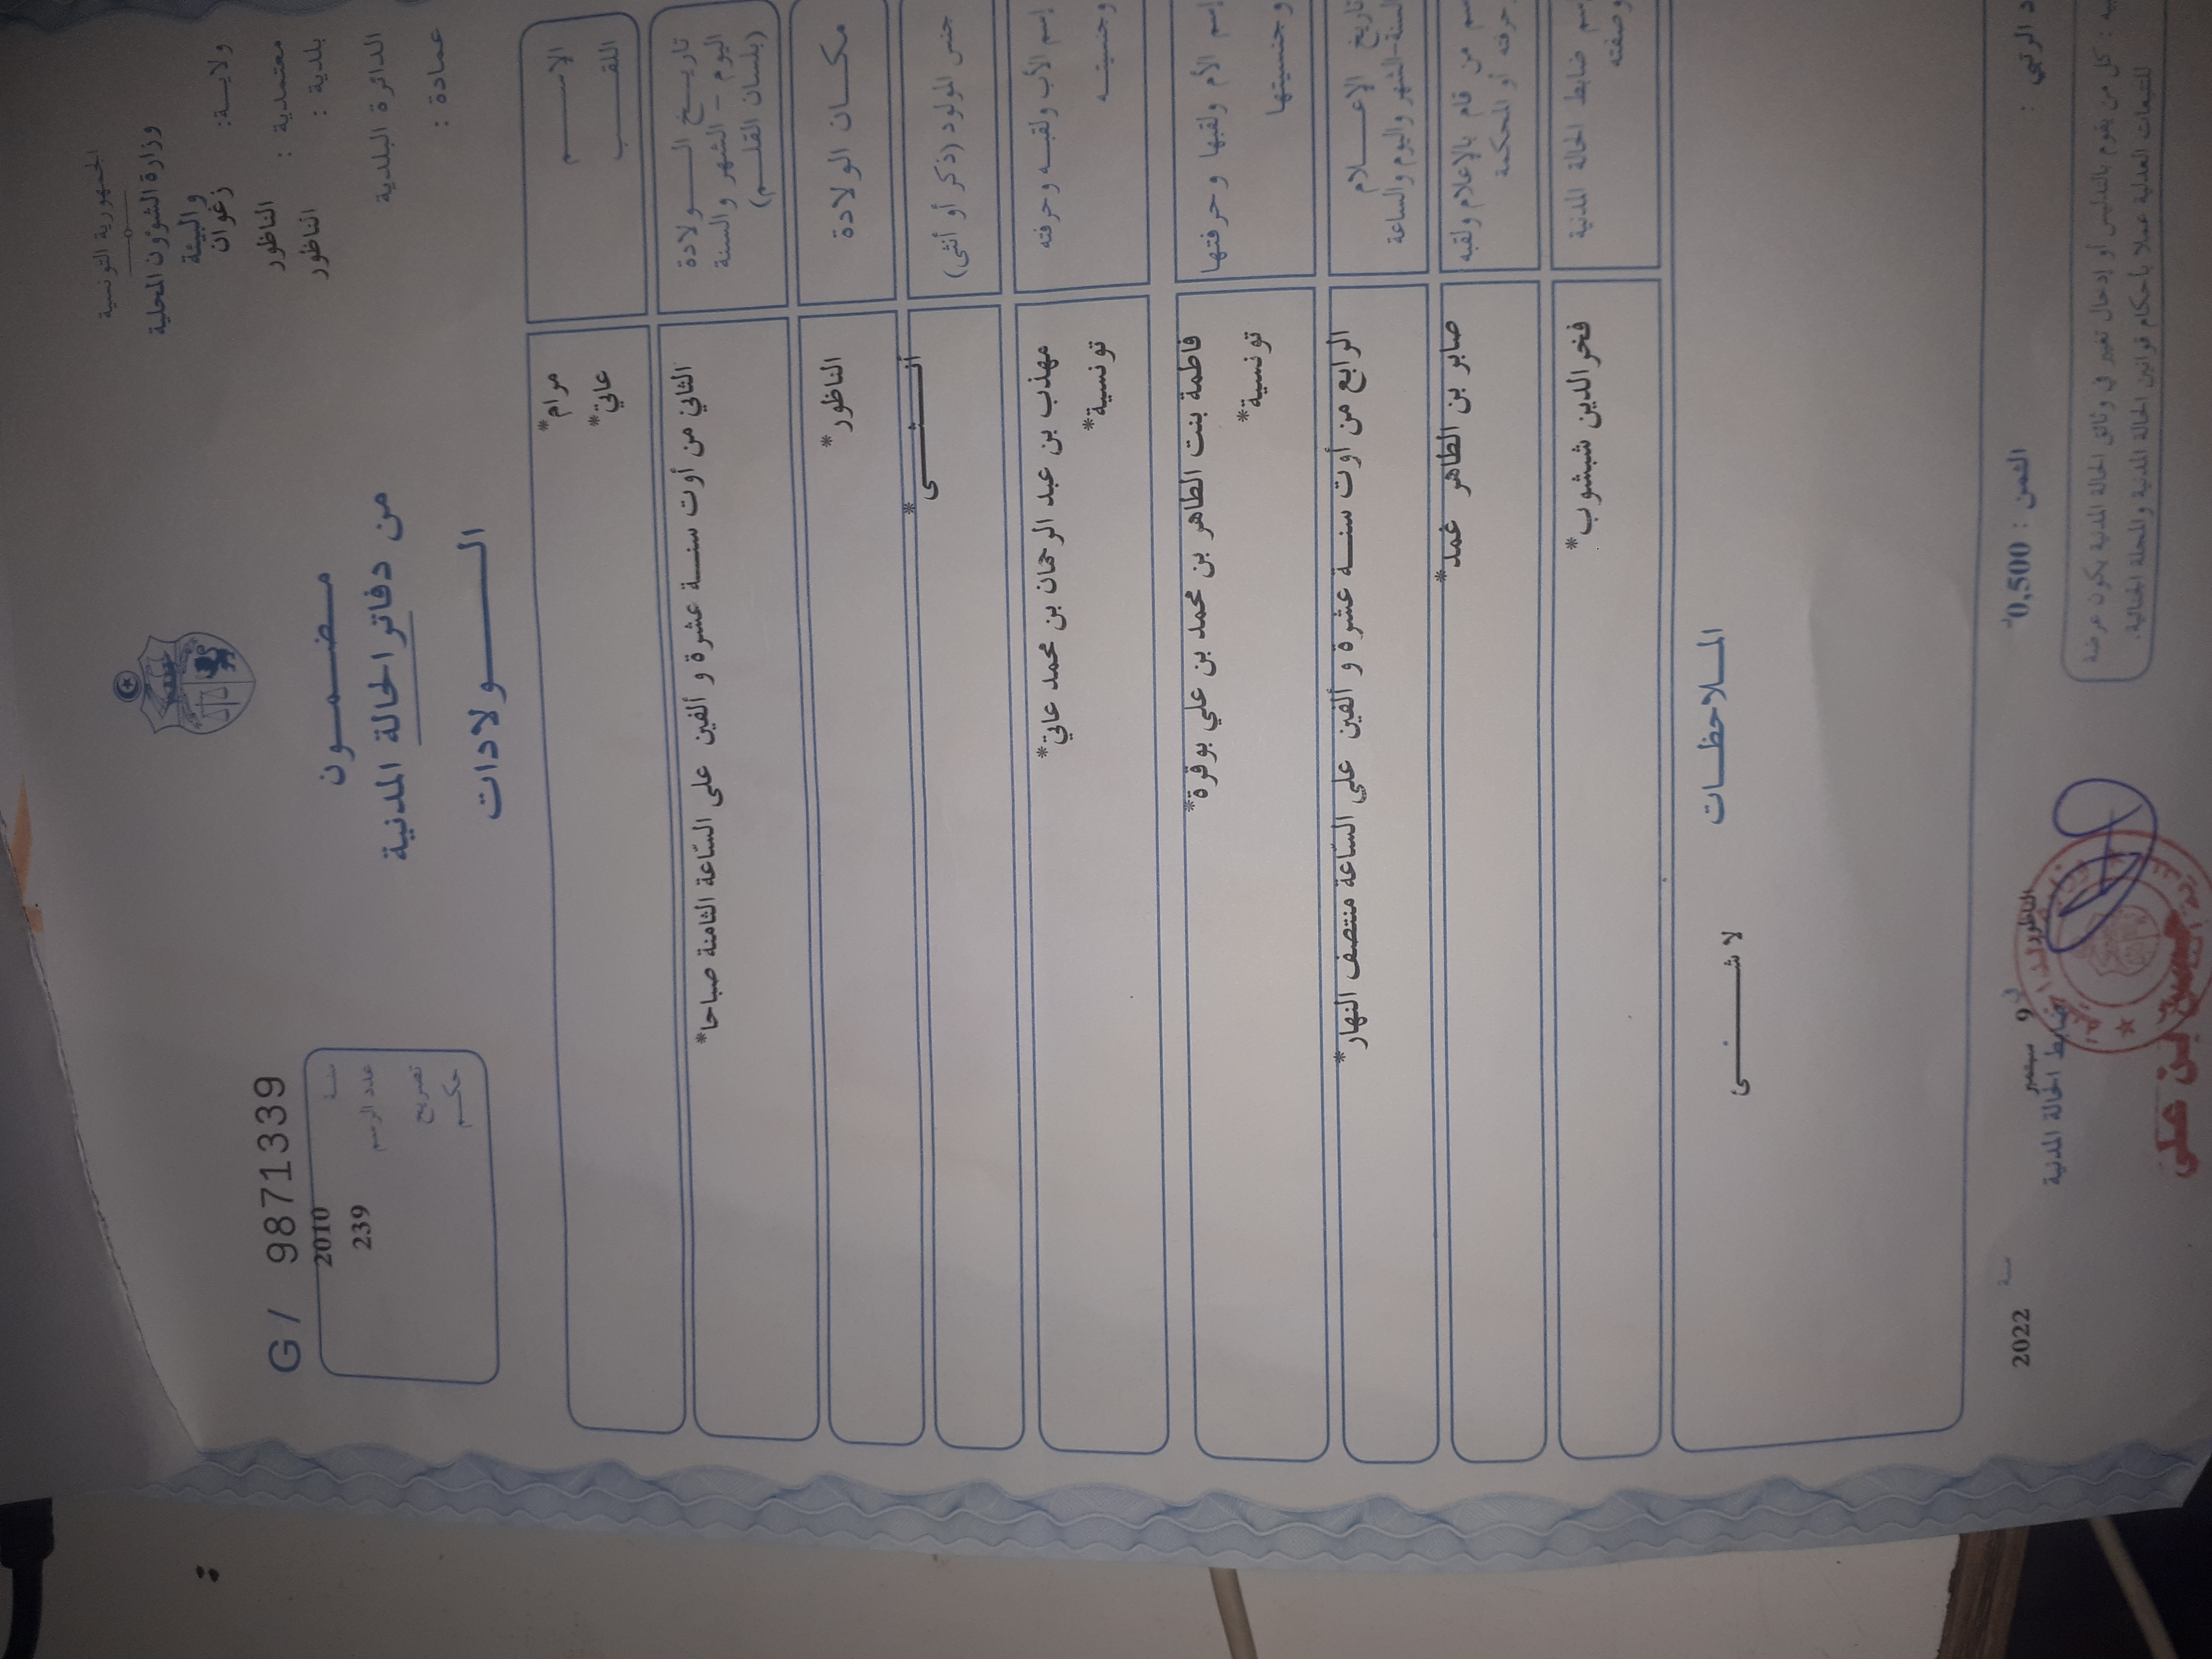 الجمهورية التونسية
وزارة الشؤون المحلية
والبيئة
ولايـة: زغوان
معتمدية : الناظور
بلدية : الناظور
الدائرة البلدية
عمادة :
مـضـمـون
من دفاتر الحالة المدنية
الـولادات
G/ 9871339
سنة 2010
عدد الرسم 239
تصريح
حكم
الإسـم مرام*
اللقـب عاتي*
تاريـخ الـولادة
اليوم - الشهر والسنة
(بلسان القلـم)
الثاني من أوت سنـة عشرة و ألفين على السّاعة الثامنة صباحا*
مكـان الولادة الناظور*
جنس المولود (ذكر أو أنثى) أنـثـى*
إسم الأب ولقبـه وحرفته مهذب بن عبد الرحمان بن محمد عاتي*
وجنسيتـه تونسية*
إسم الأم ولقبها وحرفتها فاطمة بنت الطاهر بن محمد بن علي بوقرة*
وجنسيتها تونسية*
تاريخ الإعـلام
السنة-الشهر واليوم والساعة
الرابع من أوت سنـة عشرة و ألفين علي السّاعة منتصف النهار*
من قام بالإعلام ولقبه صابر بن الطاهر غمد*
حرفته أو المحكمة
ضابط الحالة المدنية فخرالدين شبشوب*
وصفته
المـلاحظـات
لا شـئـى
الرتبي :
الثمن : 0,500
الناظور في 9 سبتمبر سنة 2022
ضابط الحالة المدنية
بن علي
كل من يقوم بالتدليس أو إدخال تغيير في وثائق الحالة المدنية يكون عرضة
للتتبعات العدلية عملا بأحكام قوانين الحالة المدنية والمجلة الجنائية.